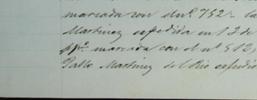 marcada con el nº. 752
Martinez espedida en 13 de
marcada con el nº 512
Pablo Martinez del Rio espedida